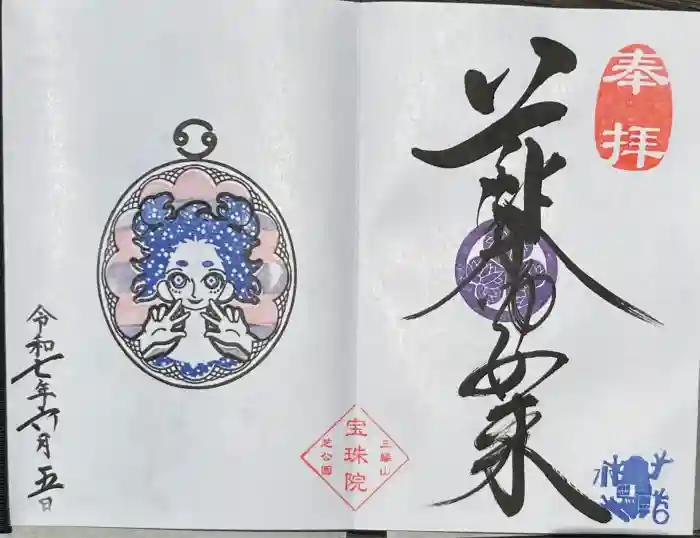 奉拝
如来
三縁山
宝珠院
芝公園
令和七年六月五日
6